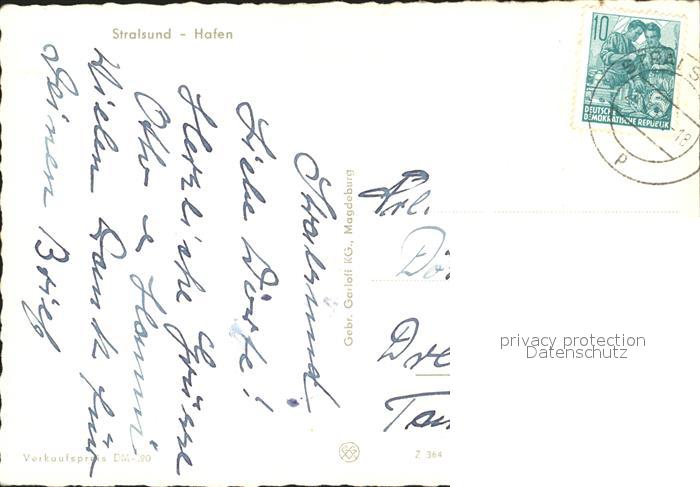 Stralsund - Hafen
Stralsund
Liebe Dörte!
Herzliche Grüsse
Otto u. Hanni
Vielen Dank für
Deinen Brief
Verkaufspreis DM -.20
Gebr. Garloff KG., Magdeburg
Z 364
10
DEUTSCHE
DEMOKRATISCHE REPUBLIK
STRALS
18
P
Frl.
Dö
Dre
privacy protection
Datenschutz